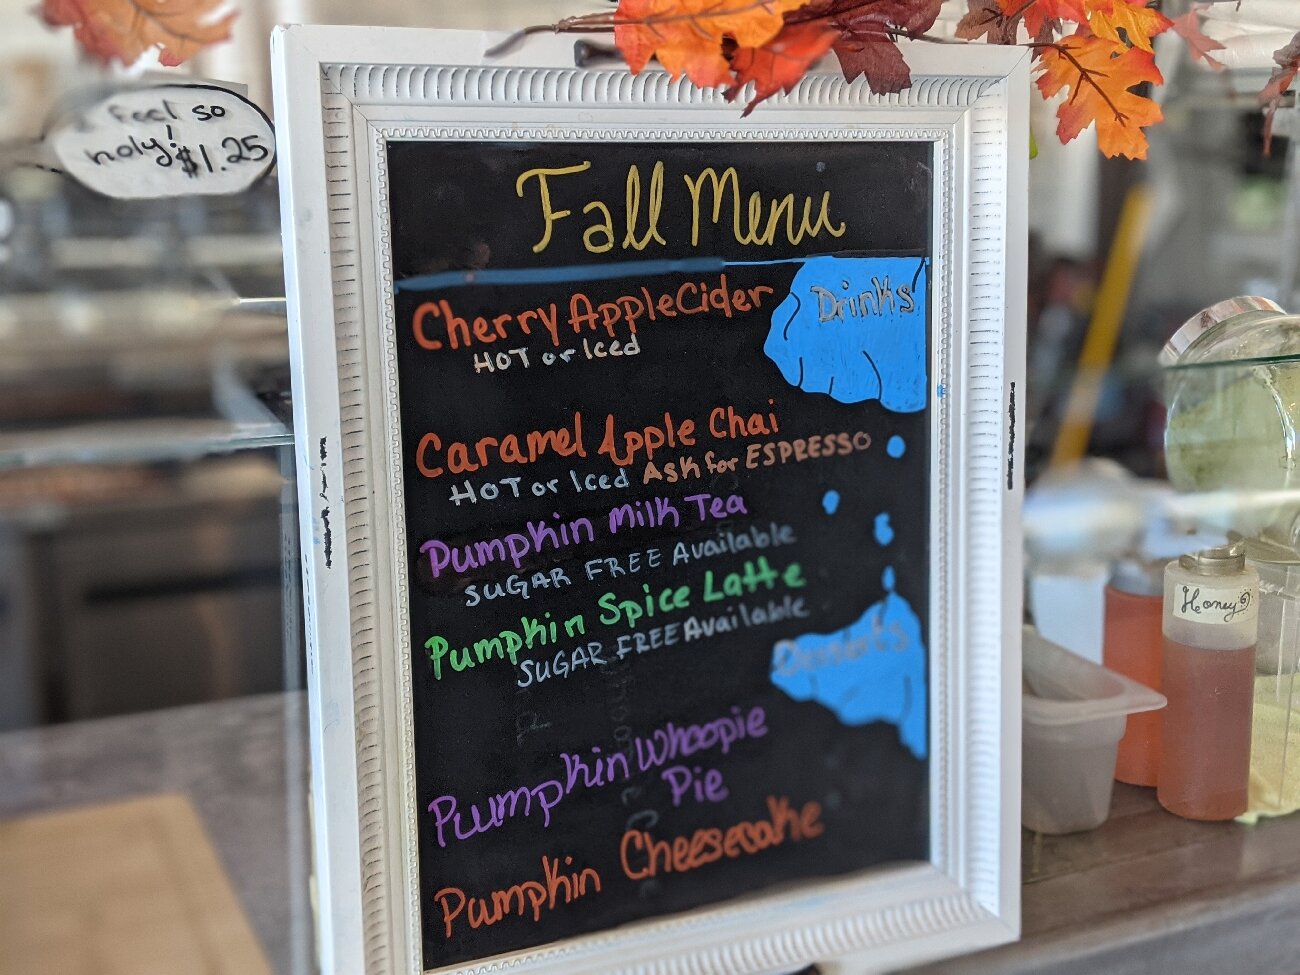 I feel so
holy!
$1.25
Fall Menu
Drinks
Cherry Apple Cider
HOT or Iced
Caramel Apple Chai
HOT or Iced Ask for ESPRESSO
Pumpkin Milk Tea
SUGAR FREE Available
Pumpkin Spice Latte
SUGAR FREE Available
Desserts
Pumpkin Whoopie
Pie
Pumpkin Cheesecake
Honey